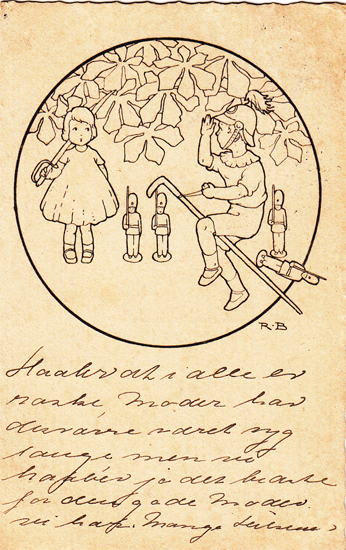 R·B
Haaber at i alle er
raske Moder har
desværre været syg
længe men vi
haaber jo det bedste
for den gode Moder
vi har. Mange Hilsener